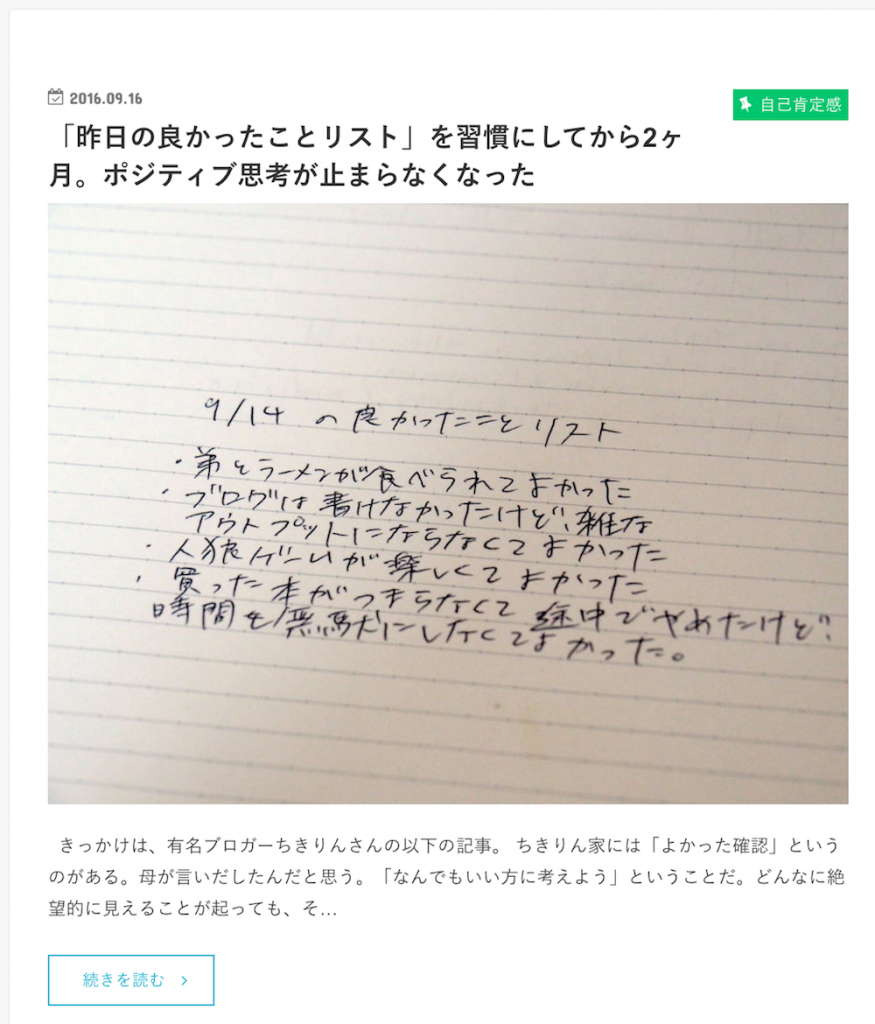 2016.09.16
自己肯定感
「昨日の良かったことリスト」を習慣にしてから2ヶ
月。ポジティブ思考が止まらなくなった
9/14 の良かったことリスト
・弟とラーメンが食べられてよかった
・ブログは書けなかったけど、雑な
アウトプットにならなくてよかった
・人狼ゲームが楽しくてよかった
・買った本がつまらなくて途中でやめたけど、
時間を無駄にしなくてよかった。
きっかけは、有名ブロガーちきりんさんの以下の記事。 ちきりん家には「よかった確認」という
のがある。母が言いだしたんだと思う。「なんでもいい方に考えよう」ということだ。どんなに絶
望的に見えることが起っても、そ…
続きを読む >